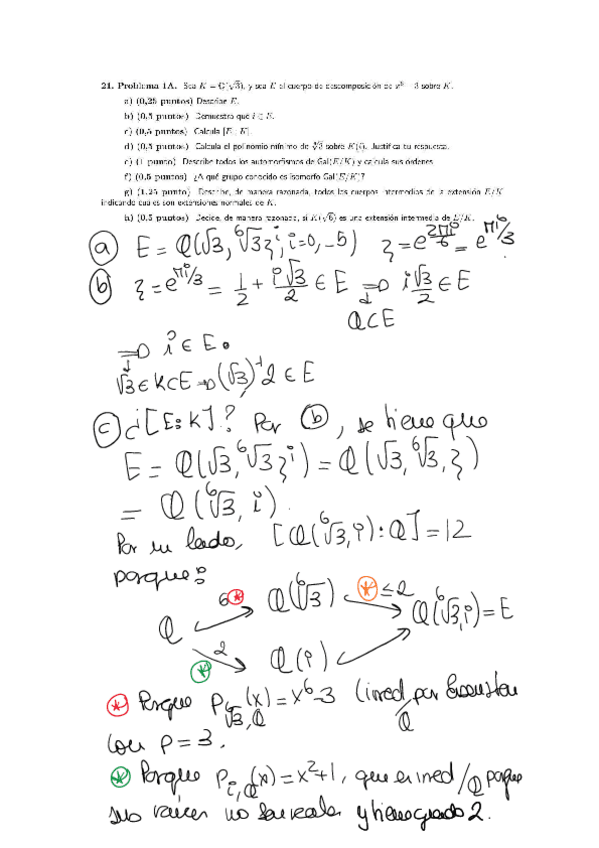 21. Problema 1A. Sea K = Q(√3), y sea E el cuerpo de descomposición de x⁶ − 3 sobre K.
a) (0,25 puntos) Describe E.
b) (0,5 puntos) Demuestra que i ∈ E.
c) (0,5 puntos) Calcula [E : K].
d) (0,5 puntos) Calcula el polinomio mínimo de ⁶√3 sobre K(i). Justifica tu respuesta.
e) (1 punto) Describe todos los automorfismos de Gal(E/K) y calcula sus órdenes.
f) (0,5 puntos) ¿A qué grupo conocido es isomorfo Gal(E/K)?
g) (1,25 punto) Describe, de manera razonada, todos los cuerpos intermedios de la extensión E/K
indicando cuáles son extensiones normales de K.
h) (0,5 puntos) Decide, de manera razonada, si K(√6) es una extensión intermedia de E/K.
a) E = Q(√3, ⁶√3 ξ^i, i=0,..5) ξ = e^(2πi/6) = e^(πi/3)
b) ξ = e^(πi/3) = 1/2 + i√3/2 ∈ E ⇒ i√3/2 ∈ E
Q ⊂ E
⇒ i ∈ E.
√3 ∈ K ⊂ E ⇒ (√3)⁻¹ 2 ∈ E
c) ¿[E:K]? Por b), se tiene que
E = Q(√3, ⁶√3 ξ^i) = Q(√3, ⁶√3, ξ)
= Q(⁶√3, i).
Por su lado, [Q(⁶√3, i) : Q] = 12
porque:
6 * Q(⁶√3) * ≤2
Q Q(⁶√3, i) = E
2 Q(i)
*
* Porque P ⁶√3,Q (x) = x⁶−3 (irred por Eisenstein
/Q
con p = 3.
* Porque P i,Q (x) = x²+1, que es irred /Q porque
sus raíces no son reales y tiene grado 2.